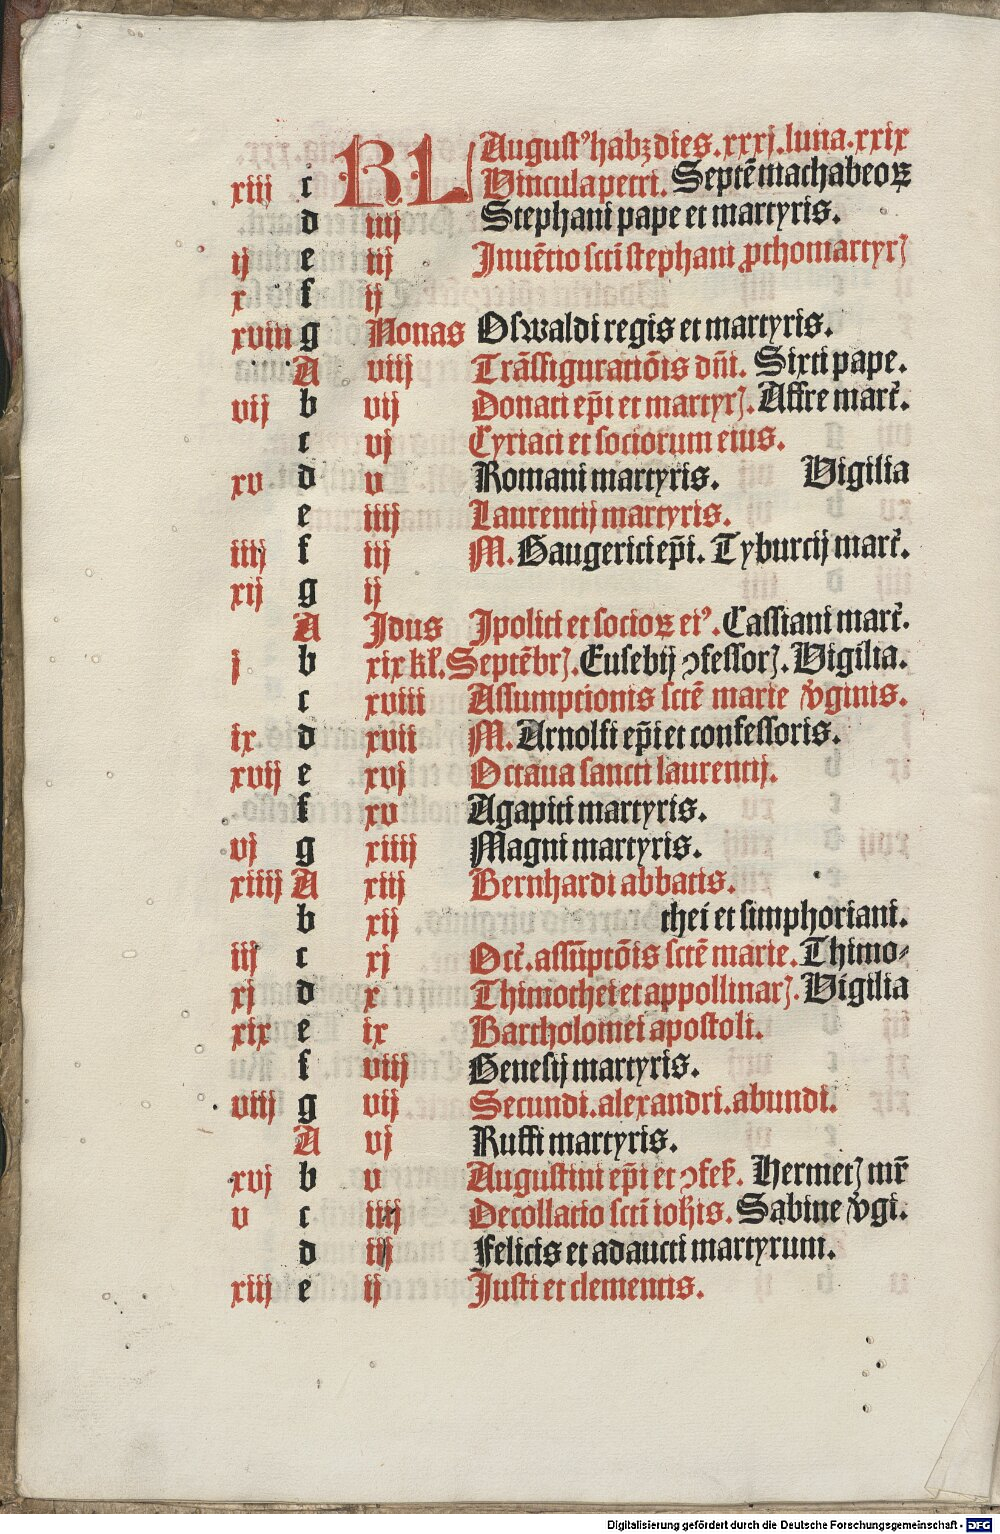 KL August⁹ habꝫ dies. xxxj. luna. xxix
xiij c Vincula petri. Septē machabeoꝝ
d iiij Stephani pape et martyris.
ij e iij Inuētio scti stephani ꝓthomartyrꝭ
x f ij
xviii g Nonas Oswaldi regis et martyris.
A viij Trāsfiguratiōis dn̄i. Sixti pape.
vij b vij Donati ep̄i et martyrꝭ. Affre mart̄.
c vj Cyriaci et sociorum eius.
xv d v Romani martyris. Vigilia
e iiij Laurencij martyris.
iiij f iij M. Gaugerici ep̄i. Tyburcij mart̄.
xij g ij
A Idus Ipoliti et socioꝝ ei⁹. Cassiani mart̄.
j b xix kl̄. Septēbrꝭ. Eusebij ꝯfessorꝭ. Vigilia.
c xviii Assumptionis sctē marie v̄ginis.
ix d xvii M. Arnolfi ep̄i et confessoris.
xvij e xvj Octaua sancti laurencij.
f xv Agapiti martyris.
vj g xiiij Magni martyris.
xiiij A xiij Bernhardi abbatis.
b xij thei et simphoriani.
iij c xj Oct̄. assūptōis sctē marie. Thimo⸗
xj d x Thimothei et appollinarꝭ. Vigilia
xix e ix Bartholomei apostoli.
f viij Genesij martyris.
viij g vij Secundi. alexandri. abundi.
A vj Ruffi martyris.
xvj b v Augustini ep̄i et ꝯfes̄. Hermetꝭ mr̄
v c iiij Decollatio scti ioh̄is. Sabine v̄gi.
d iij Felicis et adaucti martyrum.
xiij e ij Justi et clementis.
Digitalisierung gefördert durch die Deutsche Forschungsgemeinschaft - DFG